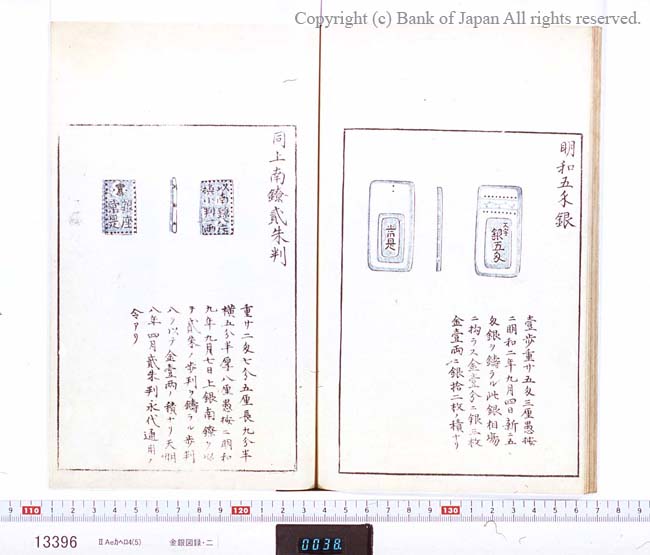 Copyright (c) Bank of Japan All rights reserved.
明和五匁銀
文字
銀五匁
常是
二明和二年九月四日新ニ五
匁銀ヲ鋳ラル此銀相場
ニ拘ラス金壹分ニ銀三枚
金壹両ニ銀拾二枚ノ積ナリ
同上南鐐貳朱判
以南鐐八片
換小判一両
銀座
常是
重廿二匁七分五厘長九分半
横五分半厚八厘愚按ニ明和
九年九月七日上銀南鐐ヲ以
テ貳朱ノ歩判ヲ鋳ラル歩判
八ツ以テ金壹両ノ積ナリ天明
八年四月貳朱判永代通用ノ
令アリ
9 110 1 2 3 4 5 6 7 8 9 120 1 2 3 4 5 6 7 8 9 130 1 2 3 4 5 6 7 8 9
13396
ⅡAeカヘロ4(5)
金銀図録・二
0038.